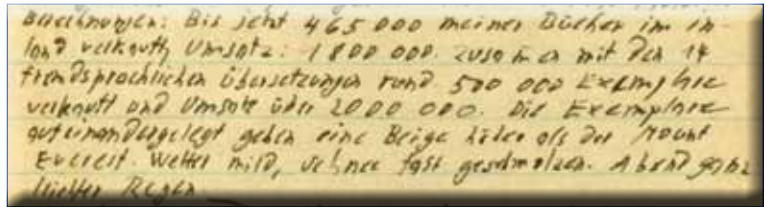 Berechnungen: Bis jetzt 465000 meiner Bücher im In-
land verkauft, Umsatz: 1800 000. Zusammen mit den 14
fremdsprachlichen Übersetzungen rund 500 000 Exemplare
verkauft und Umsatz über 2000 000. Die Exemplare
aufeinandergelegt geben eine Beige höher als der Mount
Everest. Wetter mild, Schnee fast geschmolzen. Abend ganz
leichter Regen